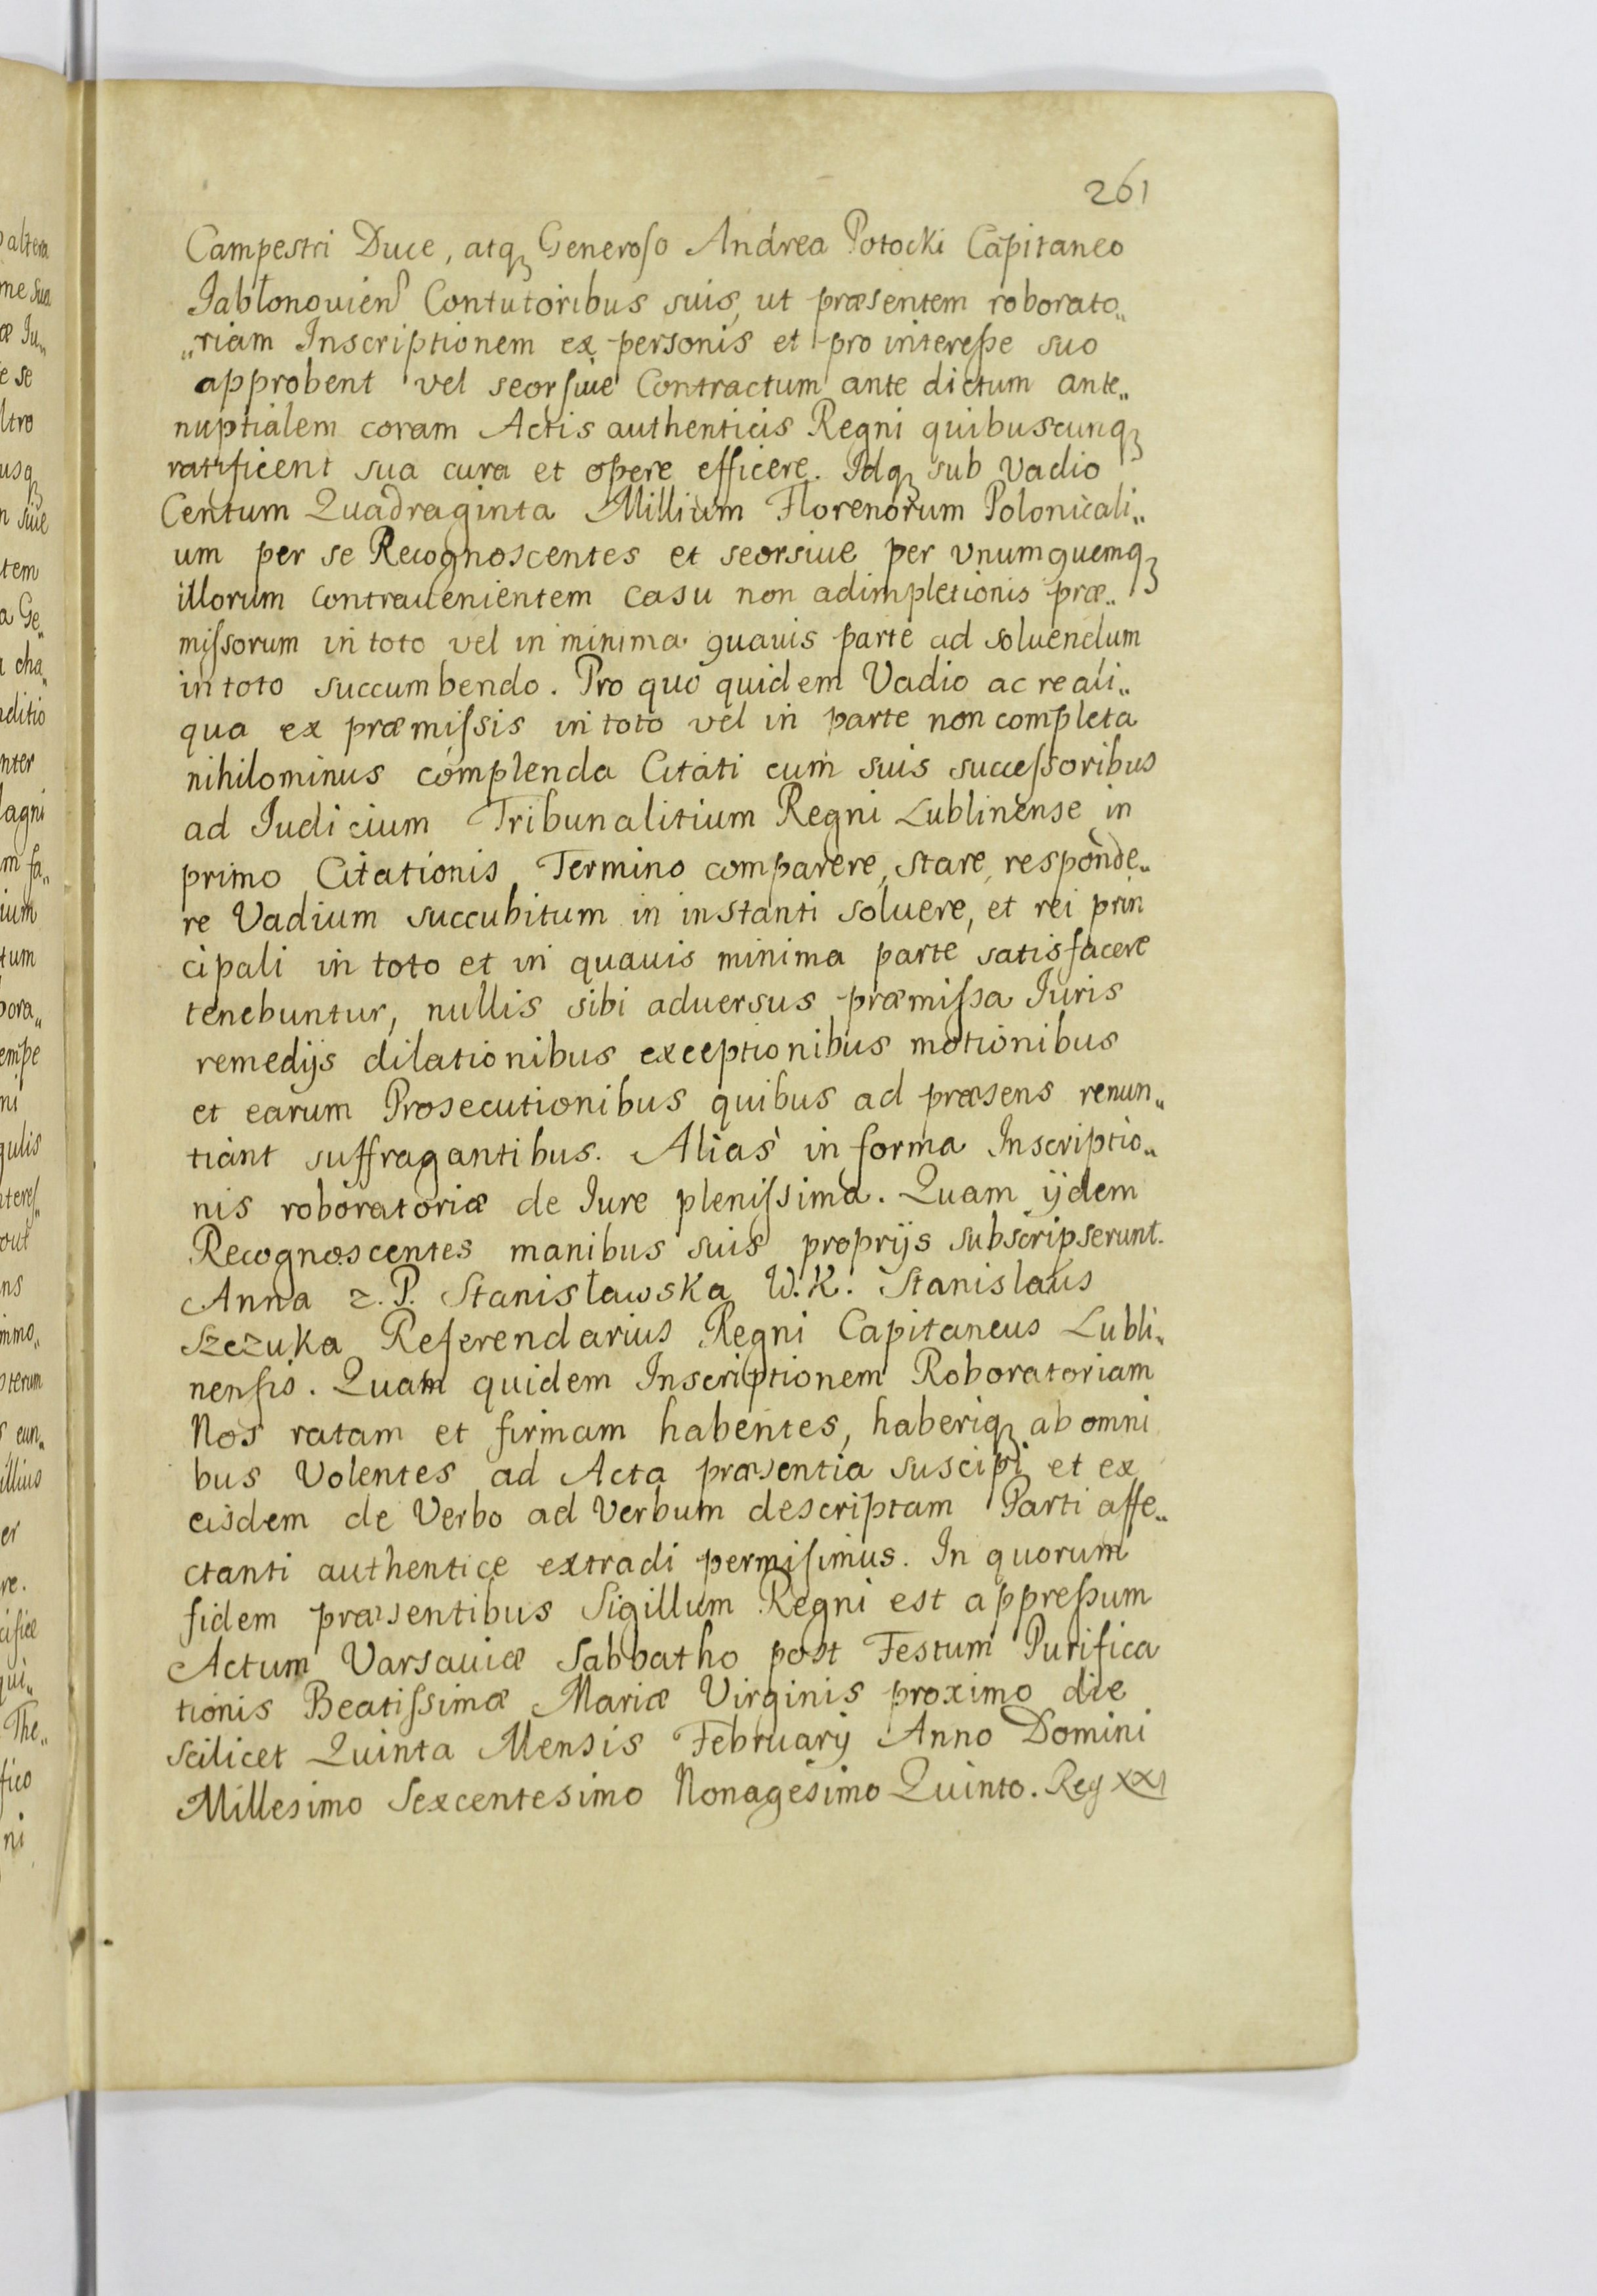 261
Campestri Duce, atqꝫ Generoso Andrea Potocki Capitaneo
Jabłonouiens Contutoribus suis, ut præsentem roborato„
„riam Inscriptionem ex personis et pro interesse suo
approbent vel seorsiue Contractum ante dictum ante„
nuptialem coram Actis authenticis Regni quibuscunqꝫ
ratificent sua cura et opere efficere. Idqꝫ sub Vadio
Centum Quadraginta Millium Florenorum Polonicali„
um per se Recognoscentes et seorsiue per vnumquemqꝫ
illorum contrauenientem casu non adimpletionis præ„
missorum in toto vel in minima quauis parte ad soluendum
in toto succumbendo. Pro quo quidem Vadio ac re ali„
qua ex præmissis in toto vel in parte non completa
nihilominus complenda Citati cum suis successoribus
ad Iudicium Tribunalitium Regni Lublinense in
primo Citationis Termino comparere, stare, responde„
re Vadium succubitum in instanti soluere, et rei prin
cipali in toto et in quauis minima parte satisfacere
tenebuntur, nullis sibi aduersus præmissa Iuris
remedijs dilationibus exceptionibus motionibus
et earum Prosecutionibus quibus ad præsens renun„
tiant suffragantibus. Alias in forma Inscriptio„
nis roboratoriæ de Iure plenissima. Quam ijdem
Recognoscentes manibus suis proprijs subscripserunt.
Anna z. P. Stanisławska W. K. Stanislaus
Szczuka Referendarius Regni Capitaneus Lubli„
nensis. Quam quidem Inscriptionem Roboratoriam
Nos ratam et firmam habentes, haberiqꝫ ab omni
bus Volentes ad Acta præsentia suscipi et ex
eisdem de Verbo ad Verbum descriptam Parti affe„
ctanti authentice extradi permisimus. In quorum
fidem præsentibus Sigillum Regni est appressum
Actum Varsauiæ Sabbatho post Festum Purifica
tionis Beatissimæ Mariæ Virginis proximo die
scilicet Quinta Mensis Februarij Anno Domini
Millesimo Sexcentesimo Nonagesimo Quinto. Reg XXI